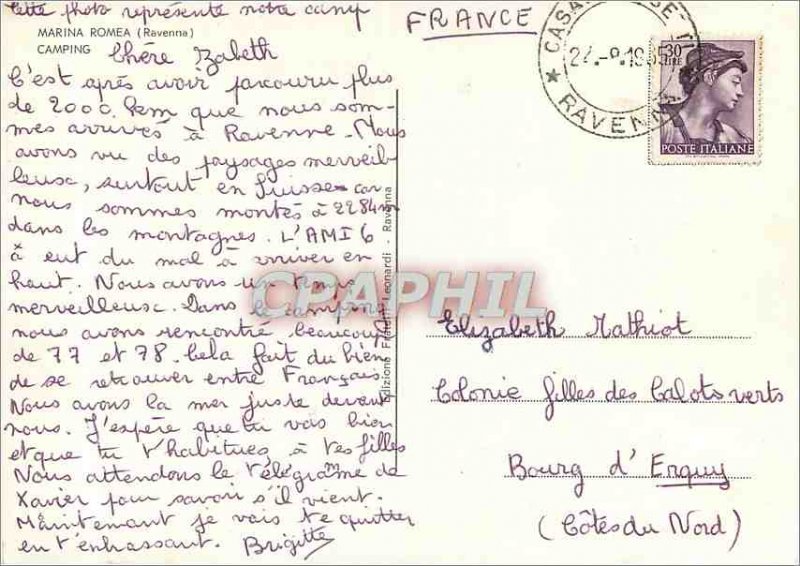 Cette photo représente notre camp
MARINA ROMEA (Ravenna)
CAMPING
Chère Zabeth
C'est après avoir parcouru plus
de 2000 km que nous som-
mes arrivés à Ravenne. Nous
avons vu des paysages merveil-
leuse, surtout en Suisse car
nous sommes montés à 2284m
dans les montagnes. L'AMI 6
à eut du mal à arriver en
haut. Nous avons un temps
merveilleuse. Dans le camping
nous avons rencontré beaucoup
de 77 et 78. Cela fait du bien
de se retrouver entre Français.
Nous avons la mer juste devant
nous. J'espère que tu vas bien
et que tu t'habitues à tes filles
Nous attendons le télégramme de
Xavier pour savoir s'il vient.
Maintenant je vais te quitter
en t'enbrassant. Brigitte
Edizione Fratelli Leonardi - Ravenna
FRANCE
24.-8.196
RAVENNA
30
LIRE
POSTE ITALIANE
CPAPHIL
Elizabeth Mathiot
Colonie filles des Calots verts
Bourg d'Erquy
(Côtes du Nord)